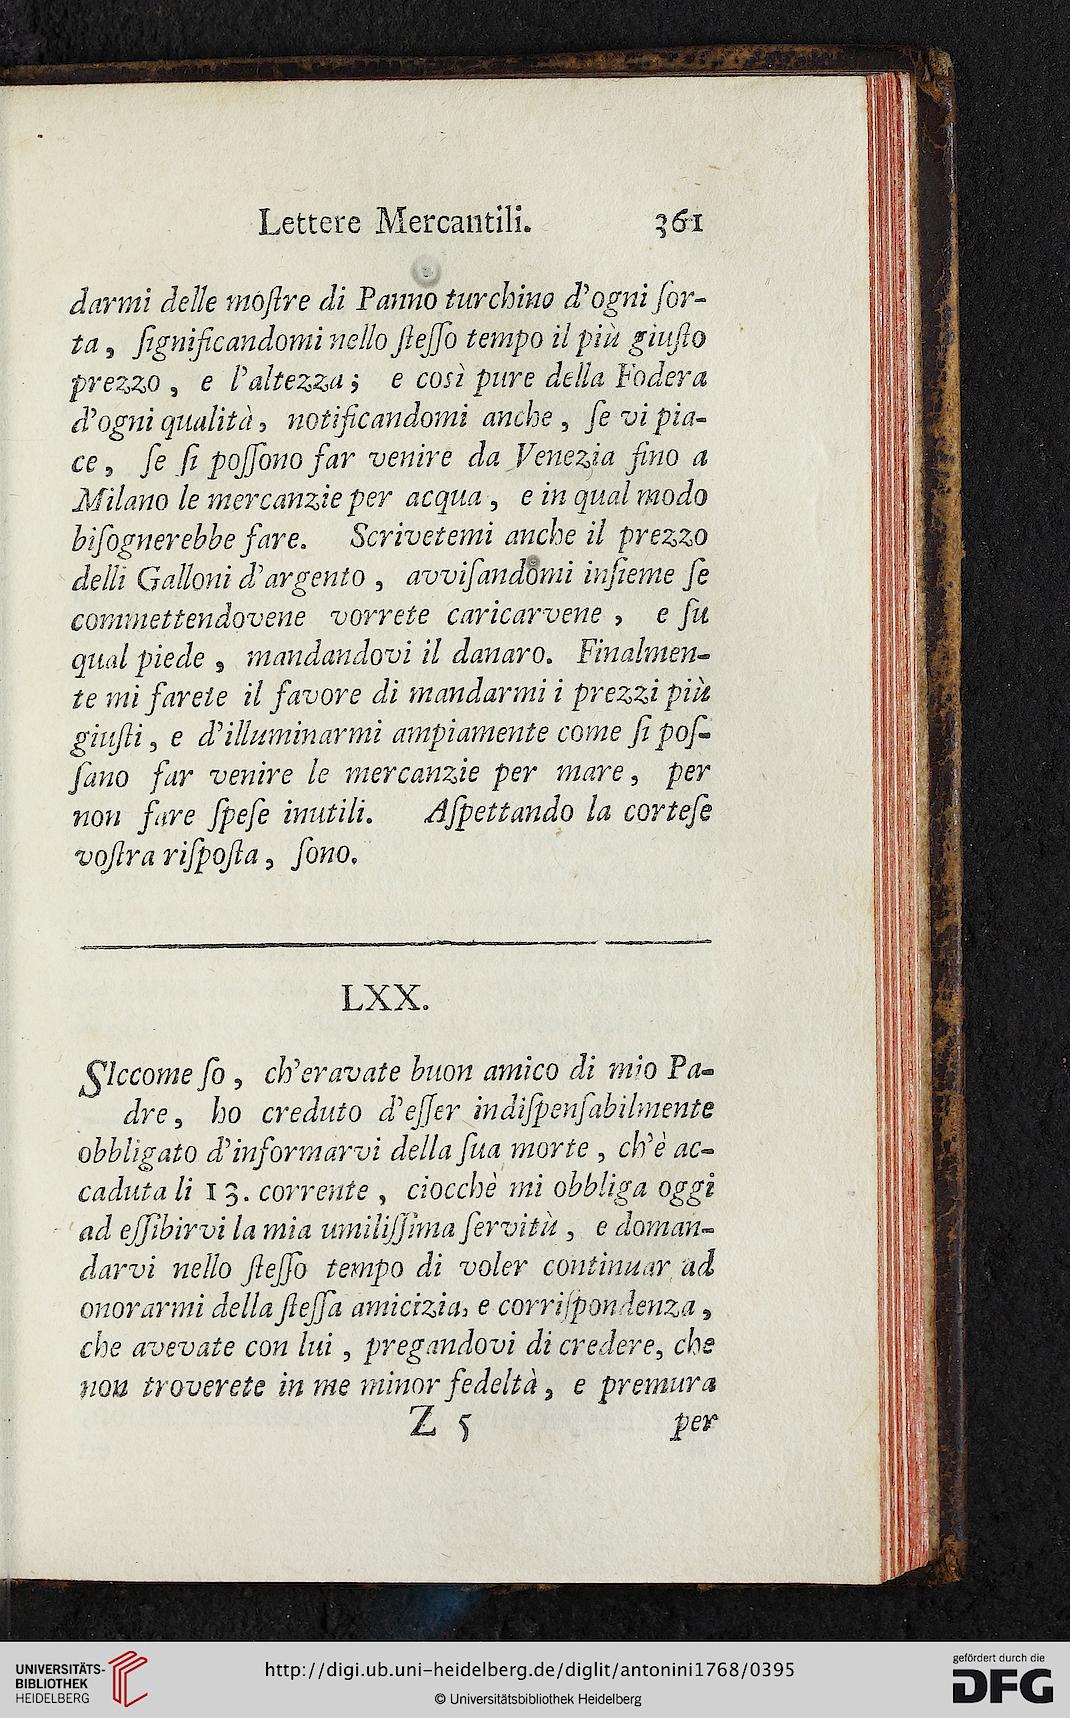 Lettere Mercantili. 361
darmi delle moſtre di Panno turchino d'ogni ſor-
ta, ſignificandomi nello ſteſſo tempo il più giuſto
prezzo, e l'altezza; e così pure della Fodera
d'ogni qualità, notificandomi anche, ſe vi pia-
ce, ſe ſi poſſono far venire da Venezia fino a
Milano le mercanzie per acqua, e in qual modo
biſognerebbe fare. Scrivetemi anche il prezzo
delli Galloni d'argento, avviſandomi inſieme ſe
commettendovene vorrete caricarvene, e ſu
qual piede, mandandovi il danaro. Finalmen-
te mi farete il favore di mandarmi i prezzi più
giuſti, e d'illuminarmi ampiamente come ſi poſ-
ſano far venire le mercanzie per mare, per
non fare ſpeſe inutili. Aſpettando la corteſe
voſtra riſpoſta, ſono.
LXX.
SIccome ſo, ch'eravate buon amico di mio Pa-
dre, ho creduto d'eſſer indiſpenſabilmente
obbligato d'informarvi della ſua morte, ch'è ac-
caduta li 13. corrente, ciocchè mi obbliga oggi
ad eſſibirvi la mia umiliſſima ſervitù, e doman-
darvi nello ſteſſo tempo di voler continuar ad
onorarmi della ſteſſa amicizia, e corriſpondenza,
che avevate con lui, pregandovi di credere, che
non troverete in me minor fedeltà, e premura
Z 5 per
UNIVERSITÄTS-
BIBLIOTHEK
HEIDELBERG
http://digi.ub.uni-heidelberg.de/diglit/antonini1768/0395
© Universitätsbibliothek Heidelberg
gefördert durch die
DFG